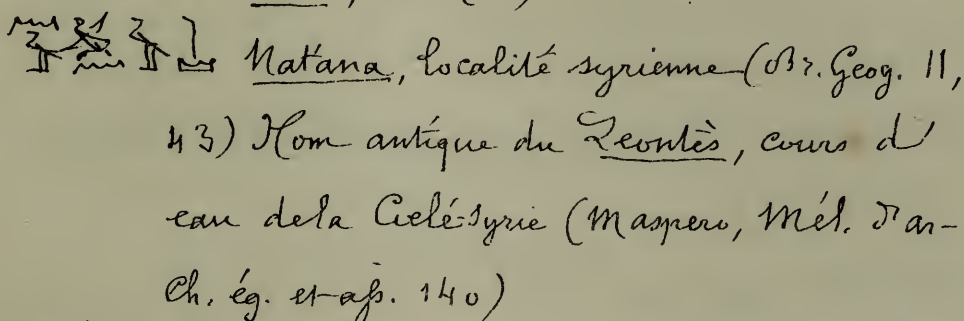 Natana, localité syrienne (Br. Geog. II,
43) Nom antique du Leontès, cours d'
eau dela Coelé-Syrie (Maspero, Mél. d'ar-
ch. ég. et ass. 140)